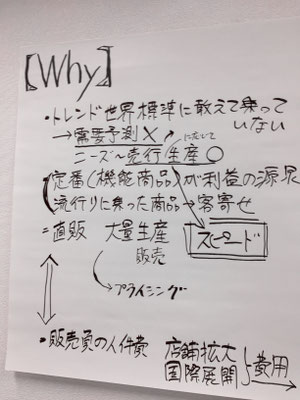 【Why】
・トレンド世界標準に敢えて乗って
いない
→需要予測×
に応じて
ニーズ〜売行生産○
・定番(機能商品)が利益の源泉
流行りに乗った商品→客寄せ
=直販 大量生産
販売
スピード
プライシング
・販売員の人件費 店舗拡大
国際展開
費用